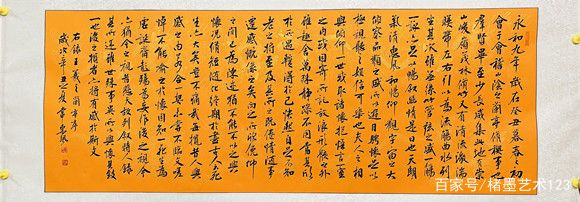 永和九年歲在癸丑暮春之初
會于會稽山陰之蘭亭修禊事也
群賢畢至少長咸集此地有崇
山峻嶺茂林修竹又有清流激湍
映帶左右引以為流觴曲水列
坐其次雖無絲竹管弦之盛一觴
一詠亦足以暢敘幽情是日也天朗
氣清惠風和暢仰觀宇宙之大
俯察品類之盛所以遊目騁懷足以
極視聽之娛信可樂也夫人之相
與俯仰一世或取諸懷抱悟言一室
之內或因寄所託放浪形骸之外
雖趣舍萬殊靜躁不同當其欣
於所遇暫得於己快然自足不知
老之將至及其所之既倦情隨事
遷感慨係之矣向之所欣俛仰
之間已為陳迹猶不能不以之興
懷況修短隨化終期於盡古人云死
生亦大矣豈不痛哉每覽昔人興
感之由若合一契未嘗不臨文嗟
悼不能喻之於懷固知一死生為
虛誕齊彭殤為妄作後之視今
亦猶今之視昔悲夫故列敘時人錄
其所述雖世殊事異所以興懷其致
一也後之覽者亦將有感於斯文
右錄王羲之蘭亭序
歲次辛丑之夏
百家号/楮墨艺术123